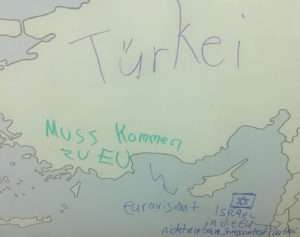 Türkei
Muss Kommen
zu EU
Eurovision +
Israel
in die EU